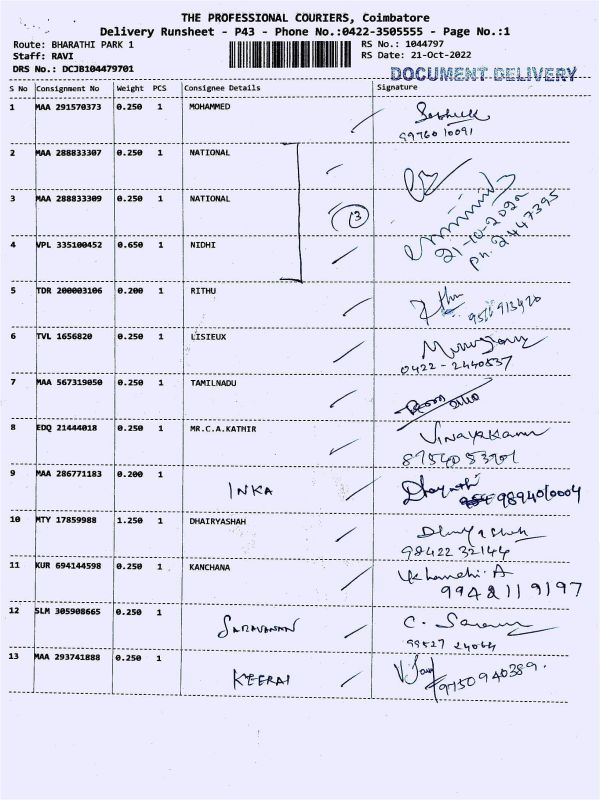 THE PROFESSIONAL COURIERS, Coimbatore
Delivery Runsheet - P43 - Phone No.:0422-3505555 - Page No.:1
Route: BHARATHI PARK 1
RS No.: 1044797
Staff: RAVI
RS Date: 21-Oct-2022
DRS No.: DCJB104479701
DOCUMENT DELIVERY
S No Consignment No Weight PCS Consignee Details Signature
1 MAA 291570373 0.250 1 MOHAMMED
99760 10091
2 MAA 288833307 0.250 1 NATIONAL
3 MAA 288833309 0.250 1 NATIONAL 3
21-10-2022
ph. 2447395
4 VPL 335100452 0.650 1 NIDHI
5 TDR 200003106 0.200 1 RITHU
6 TVL 1656820 0.250 1 LISIEUX
0422-2440537
7 MAA 567319050 0.250 1 TAMILNADU
8 EDQ 21444018 0.250 1 MR.C.A.KATHIR Vinayakam
9 MAA 286771183 0.200 1 INKA 9894010004
10 MTY 17859988 1.250 1 DHAIRYASHAH
98422 32144
11 KUR 694144598 0.250 1 KANCHANA
9942119197
12 SLM 305908665 0.250 1 SARAVANAN
99527 24064
13 MAA 293741888 0.250 1 KEERAI 9750940389.